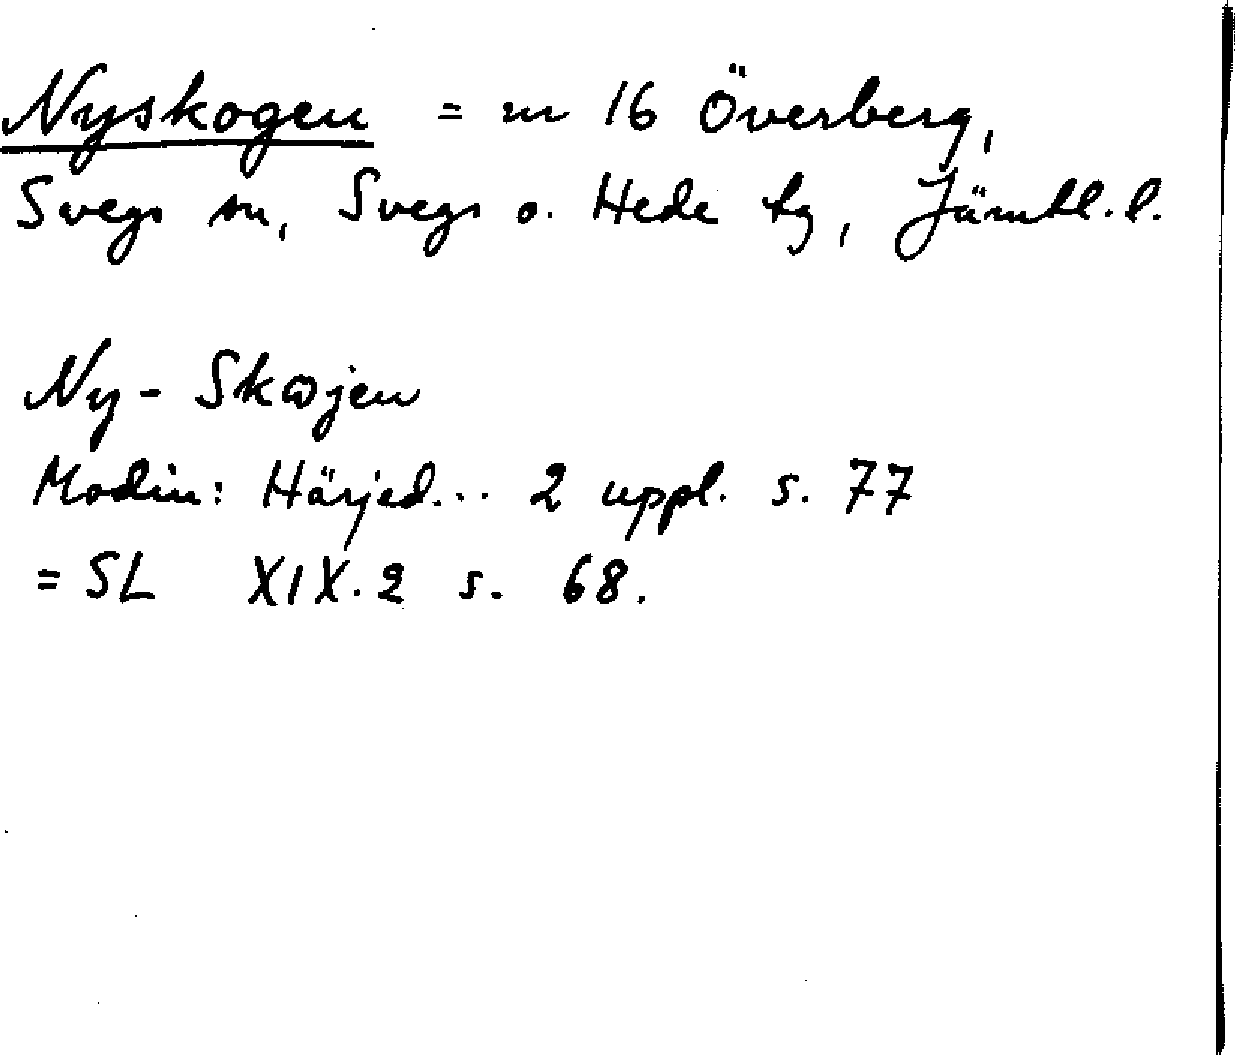 Nyskogen = nr 16 Överberg,
Svegs sn, Svegs o. Hede tg, Jämtl. l.
Ny-Skωjen
Modin: Härjed... 2 uppl. s. 77
= SL XIX.2 s. 68.